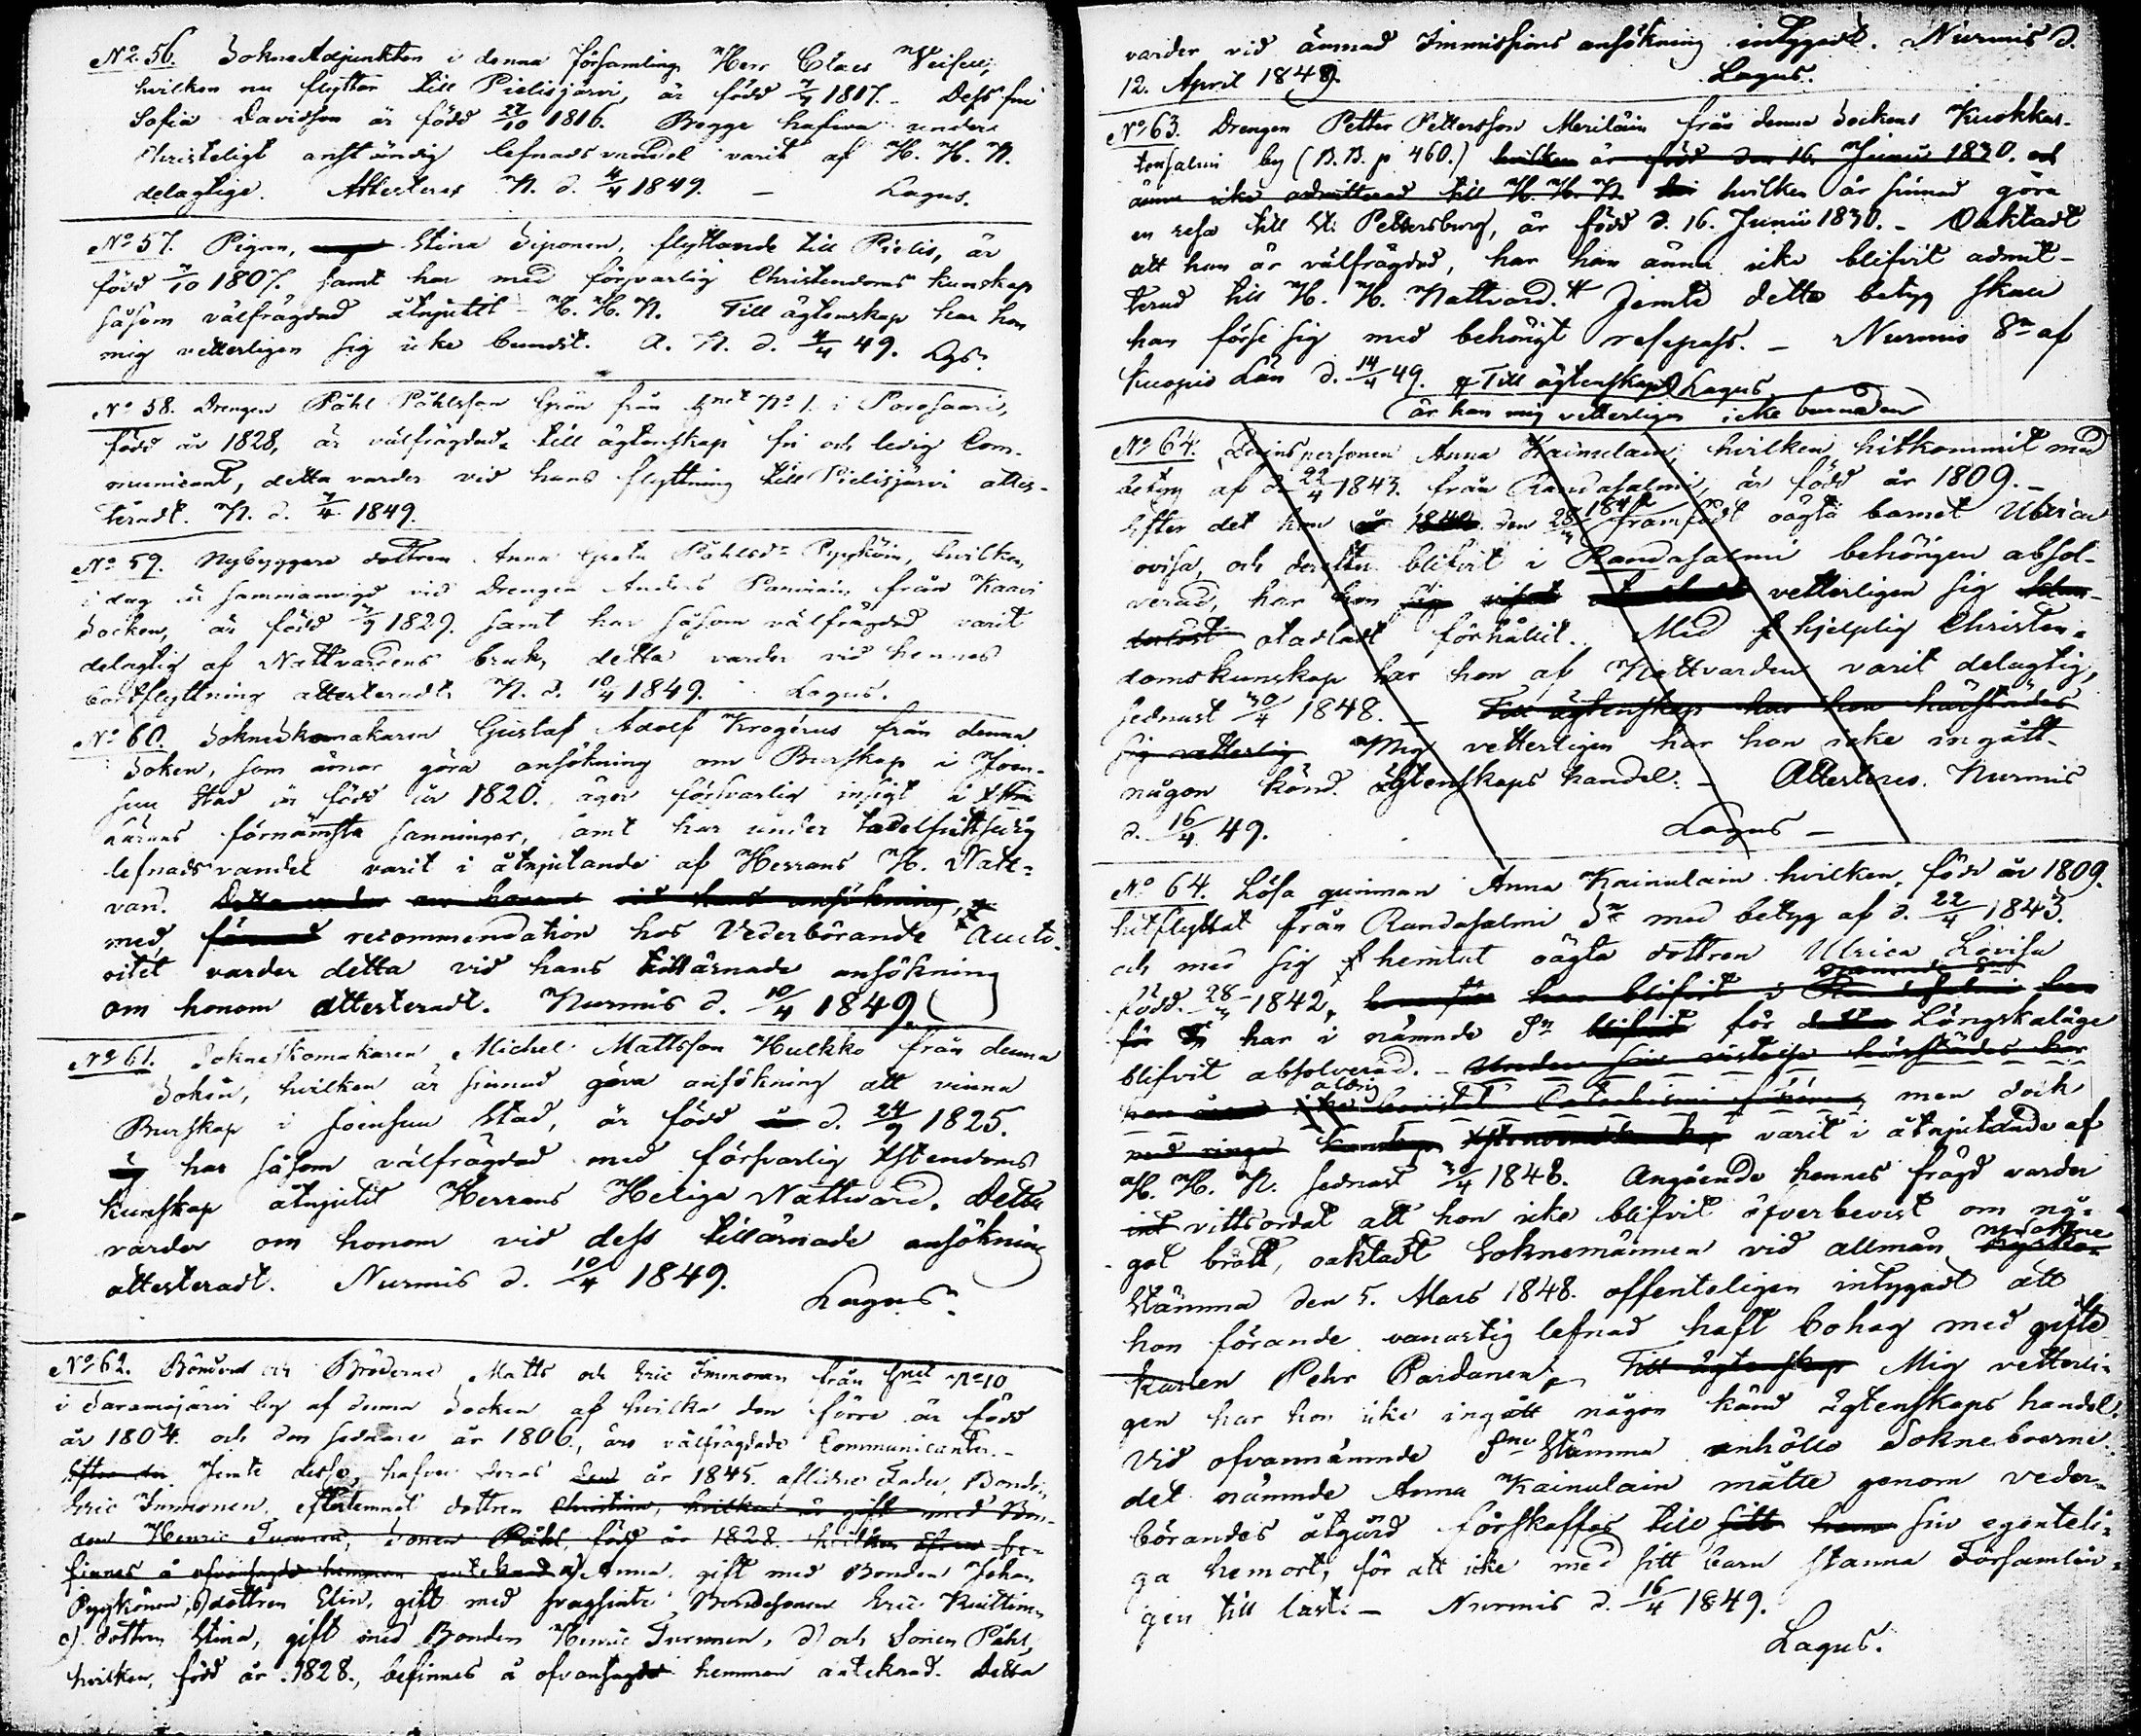 No 56. SokneAdjunkten i denna Församling Herr Claes
hvilken nu flyttar till Pielisjärvi, är född 7/7 1817. – Dess fru
Sofia Davidson är född 22/10 1816. Begge hafwa under
Christeligt anständig lefnadsvandel varit af H. H. N.
delagtige. Attesteras N. d. 4/4 1849. – Lagus.
No 57. Pigan, Stina Siponen, flyttande till Pielis, är
född 7/10 1807. samt har med försvarlig Christendoms kunskap
såsom välfrägdad åtnjutit H. H. N. Till ägtenskap har hon
mig vetterligen sig icke bundit. A. N. d. 4/4 49. Lgs.
No 58. Drengen Påhl Påhlsson Grön från No 1. i Porosaari,
född år 1828, är välfrägdad, till ägtenskap fri och ledig Com-
municant, detta varder vid hans flyttning till Pielisjärvi attes-
teradt. N. d. 7/4 1849.
No 59. Nybyggare dottren Anna Greta Påhlsdr Pyykköin, hvilken,
i dag är sammanvigd vid Drengen Anders från Kaavi
Socken, är född 7/9 1829. samt har såsom välfrägdad varit
delagtig af Nattvardens bruk, detta varder vid hennes
bortflyttning attesteradt. N. d. 10/4 1849. Lagus.
No 60. Sokneskomakaren Gustaf Adolf Krogérus från denna
Soken, som ämar göra ansökning om Burskap i Joen-
suu Stad är född år 1820. äger försvarlig insigt i
Lärans förnämsta sanningar, samt har under tadelfritt sedig
lefnadsvandel varit i åtnjutande af Herrans H. Natt-
vard. Detta varder om honom vid hans ansökning,
med recommendation hos Vederbörande Aucto-
ritet varder detta vid hans tillärnade ansökning
om honom attesteradt. Nurmis d. 10/4 1849.
No 61. Sokneskomakaren Michel Mattsson Hulkko från denna
Soken, hvilken är sinnad göra ansökning att vinna
Burskap i Joensuu Stad, är född d. 24/9 1825.
har såsom välfrägdad med försvarlig Xstendoms
kunskap åtnjutit Herrans Heliga Nattvard. Detta
varder om honom vid dess tillärnade ansökning
attesteradt. Nurmis d. 10/4 1849.
Lagus.
No 62. Bönderne och Bröderne Matts och Eric Immonen från No 10
i Saramojärvi by af denna Socken af hvilka den förre är född
år 1804. och den sednare år 1806., äro välfrägdade Communicanter. –
Efter det Jemte desse, hafva deras år 1845. aflidne Fader, Bonden
Eric Immonen, efterlemnat dottren Christina, hvilken är gift med Bon-
den Henric Turunen, Sonen Påhl, född år 1828. hvilken be-
finnes å ofvansagde hemman antecknad a) Anna. gift med Bonden Johan
Pyykönen, b) dottren Elin, gift med Bondesonen Eric
c) dottren Stina, gift med Bonden Henric Turunen, d) och Sonen Påhl,
hvilken, född år 1828., befinnes å ofvansagde hemman antecknad. Detta
varder vid ämnad Immissions ansökning intygadt. Nurmis d.
12. April 1849. Lagus.
No 63. Drengen Petter Pettersson Meriläin från denna Sockens Kuokkas-
tensalmi by (B. B. p 460.) hvilken är född den 16. Junii 1830. och
ännu icke admitterad till H. H. N. hvilken är sinnad göra
en resa till St. Pettersburg, är född d. 16. Junii 1830. – Oaktadt
att han är välfrägdad, har han ännu icke blifvit admit-
terad till H. H. Nattvard. # Jemte detta betyg skall
han förse sig med behörigt resepass. – Nurmis Sn af
Kuopio Län d. 14/4 49. # Till ägtenskap Lagus
är han mig vetterligen icke bunden
No 64. personen Anna Kainulain, hvilken hitkommit med
betyg af d. 22/4 1843. från Randasalmi, är född år 1809. –
Efter det hon år 1842 den 28/ framfödt oägta barnet Ulrica
Lovisa, och derefter blifvit i Randasalmi behörigen absol-
verad, har hon vetterligen sig
otadladt förhållit. Med hjelplig Christen-
domskunskap har hon af Nattvarden varit delagtig,
sednast 30/4 1848. – Till ägtenskap har hon härstädes
sig vetterlig Mig vetterligen har hon icke ingått
någon känd ägtenskaps handel. – Attesteras. Nurmis
d. 16/4 49. Lagus –
No 64. Lösa qvinnan Anna Kainulain hvilken, född år 1809.
hitflyttat från Randasalmi Sn med betyg af d. 22/4 1843.
och med sig hemtat oägta dottren Ulrica Lovisa
född 28/ 1842, har blifvit i
för har i nämnde Sn för Löngskaläge
blifvit absolverad. – Under sin vistelse härstädes har
hon aldrig bevistat Catechismi men dock
med ringa varit i åtnjutande af
H. H. N. sednast 30/4 1848. Angående hennes frägd varder
vittsordat att hon icke blifvit öfverbevist om nå-
got brått, oaktadt Soknemännen vid allmän Sokne
Stämma den 5. Mars 1848. offenteligen intygadt att
hon förande vanartig lefnad haft bohag med gifte
Karlen Pehr Pardanen, Till ägtenskap Mig vetterli-
gen har hon icke ingått någon känd ägtenskaps handel.
Vid ofvannämnde Sne Stämma anhöllo Sokneboerne
det nämnde Anna Kainulain måtte genom veder-
börandes åtgärd förskaffas till sitt hem sin egenteli-
ga hemort, för att icke med sitt barn stanna Församlin-
gen till last. – Nurmis d. 16/4 1849.
Lagus.